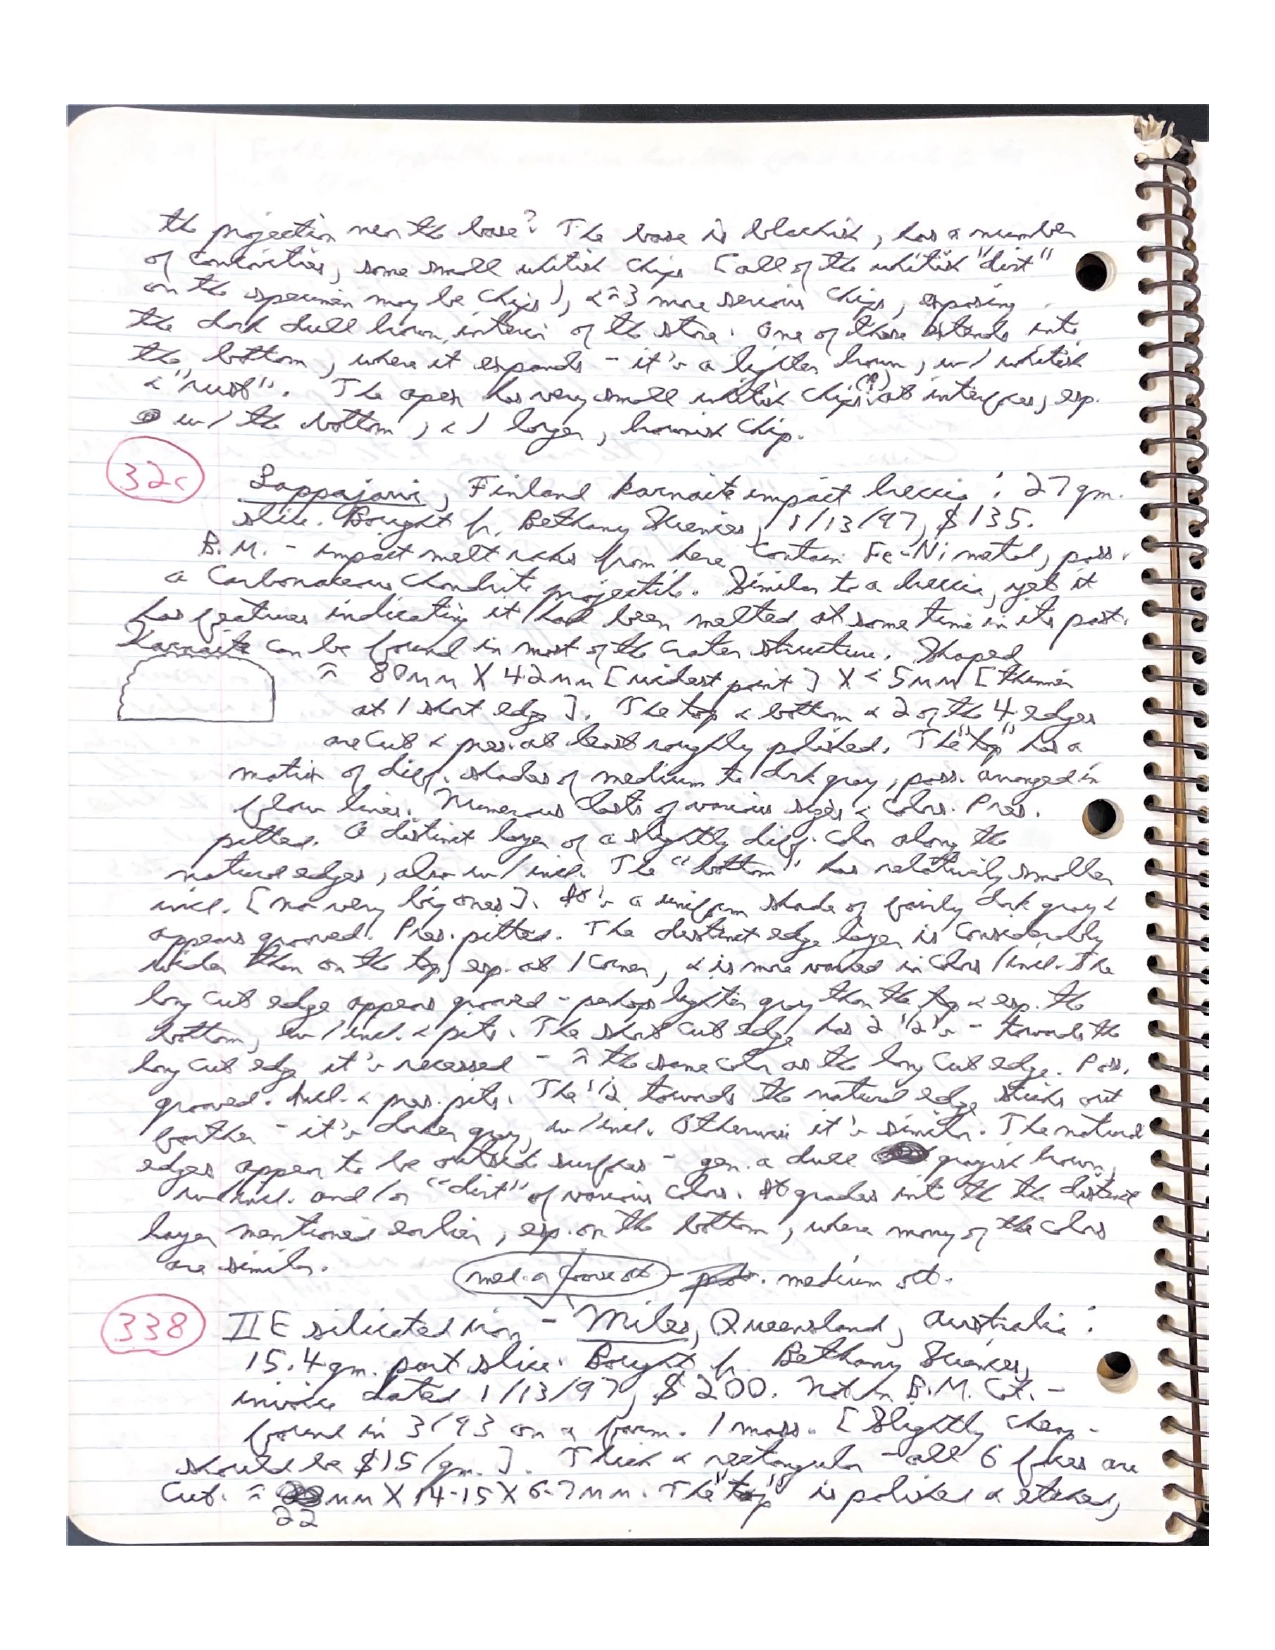 the projection near the base? The base is blackish, has a number
of concavities, some small whitish chips [all of the whitish "dirt"
on the specimen may be chips], & ≈3 more serious chips, exposing
the dark dull brown interior of the stone. One of these extends into
the bottom, where it expands - it's a lighter brown, w/ whitish
& "rust". The apex has very small whitish chips (?) at interfaces, esp.
w/ the bottom, & 1 larger, brownish chip.
32c
Lappajarvi, Finland karnaite impact breccia: 27gm.
slice. Bought fr. Bethany Sciences, 1/13/97, $135.
B.M. - impact melt rocks from here contain Fe-Ni metal, poss.
a carbonaceous chondrite projectile. Similar to a breccia, yet it
has features indicating it had been melted at some time in its past.
Karnaite can be found in most of the crater structure. Shaped
≈ 80mm X 42mm [widest point] X <5mm [thinner
at 1 short edge]. The top & bottom & 2 of the 4 edges
are cut & pres. at least roughly polished. The "top" has a
matrix of diff. shades of medium to dark gray, poss. arranged in
flow lines. Numerous clasts of various sizes & colors. Pres.
pitted. A distinct layer of a slightly diff. color along the
natural edges, also w/ incl. The "bottom" has relatively smaller
incl. [no very big ones]. It's a uniform shade of fairly dark gray &
appears grooved. Pres. pitted. The distinct edge layer is considerably
wider than on the top, esp. at 1 corner, & is more varied in colors/incl. The
long cut edge appears grooved - perhaps lighter gray than the top & esp. the
bottom, w/ incl. & pits. The short cut edge has 2 1/2's - towards the
long cut edge it's recessed - ≈ the same color as the long cut edge. Poss.
grooved. Incl. & pres. pits. The 1/2 towards the natural edge sticks out
farther - it's darker gray, w/ incl. Otherwise it's similar. The natural
edges appear to be outside surfaces - gen. a dull grayish brown,
w/ incl. and/or "dirt" of various colors. It grades into the the distinct
layer mentioned earlier, esp. on the bottom, where many of the colors
are similar.
medium oct.
338
IIE silicated iron - Miles, Queensland, Australia:
15.4gm. part slice. Bought fr. Bethany Sciences,
invoice dated 1/13/97, $200. Not in B.M. Cat. -
found in 3/93 on a farm. 1 mass. [Slightly cheap -
should be $15/gm.]. Thick & rectangular - all 6 faces are
cut. ≈ 22 mm X 14-15 X 6-7mm. The "top" is polished & etched,